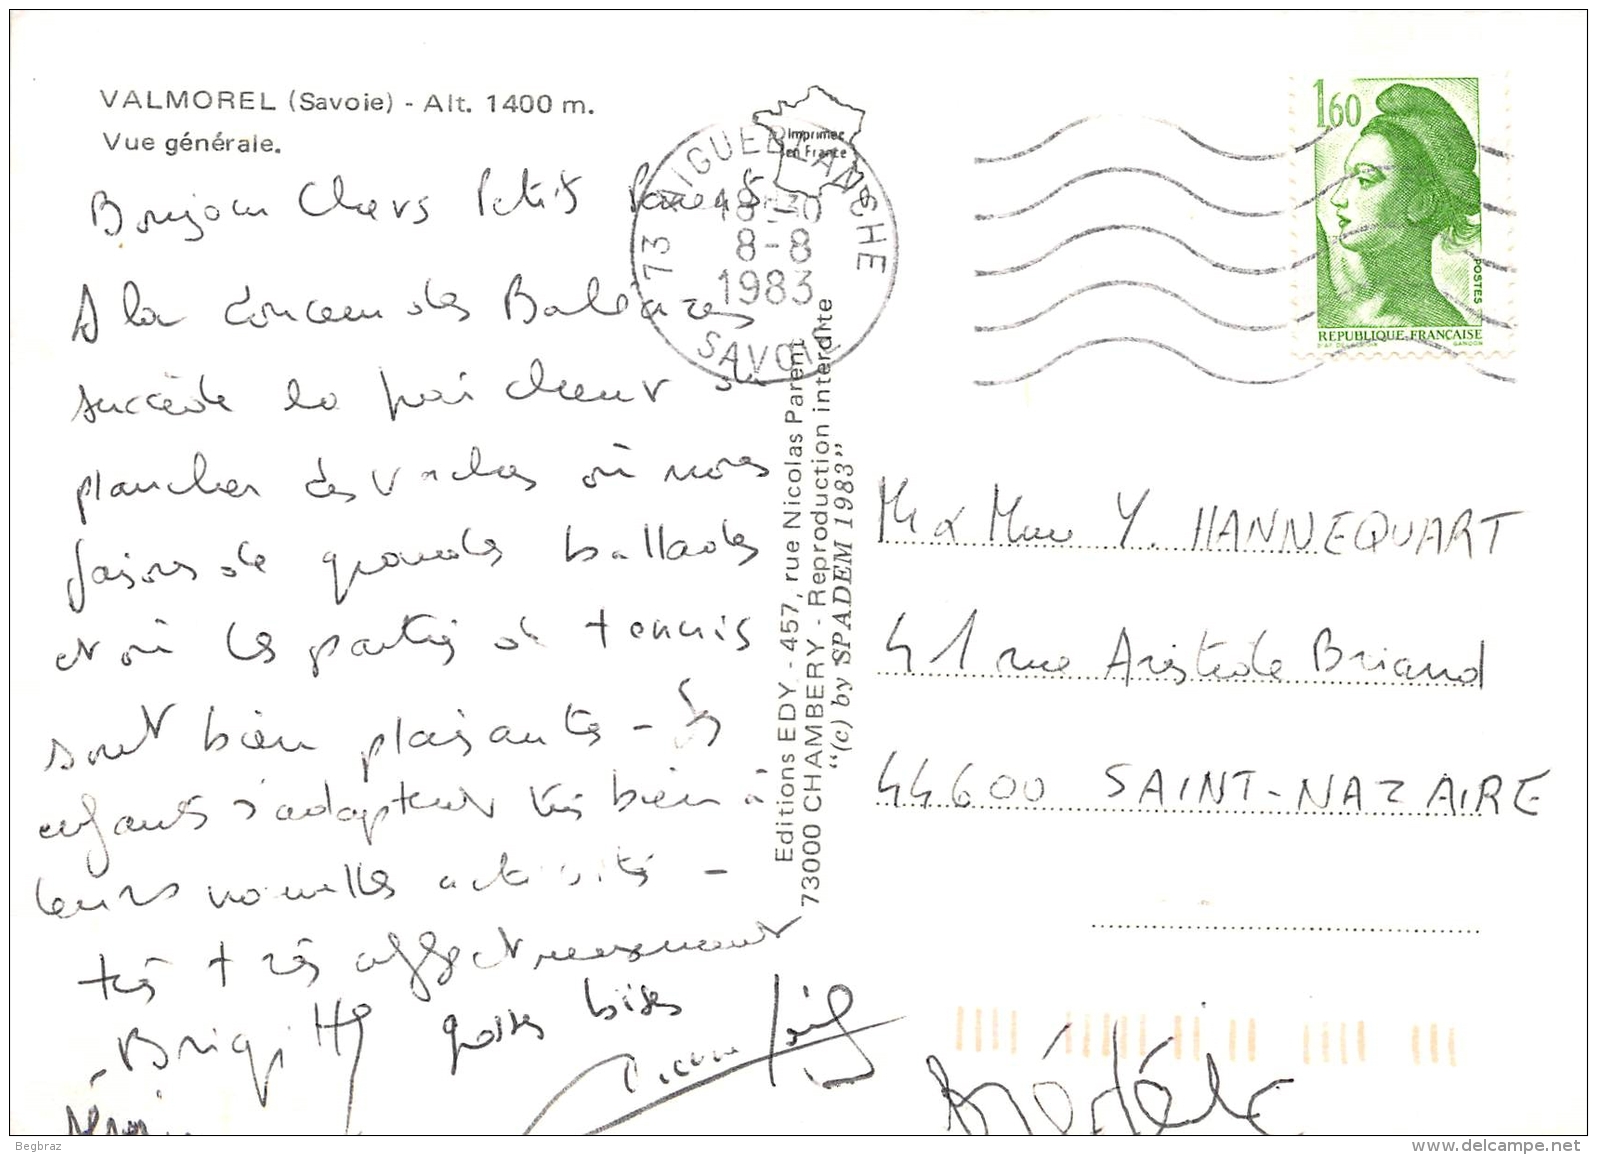 VALMOREL (Savoie) - Alt. 1400 m.
Vue générale.
Bonjour Chers Petits Parents
A la douceur des Baléares
succède la fraicheur du
plancher des vaches où nous
faisons de grandes ballades
et où les parties de tennis
sont bien plaisantes - Les
enfants s'adaptent très bien à
leurs nouvelles activités -
très très affectueusement
Brigitte
grosses bises
Imprimée
en France
73 AIGUEBLANCHE
18 30
8-8
1983
SAVOIE
Editions EDY - 457, rue Nicolas Parent
73000 CHAMBERY - Reproduction interdite
"(c) by SPADEM 1983"
1,60
POSTES
REPUBLIQUE FRANÇAISE
GANDON
Mr & Mme Y. HANNEQUART
41 rue Aristide Briand
44600 SAINT-NAZAIRE
Begbraz
www.delcampe.net